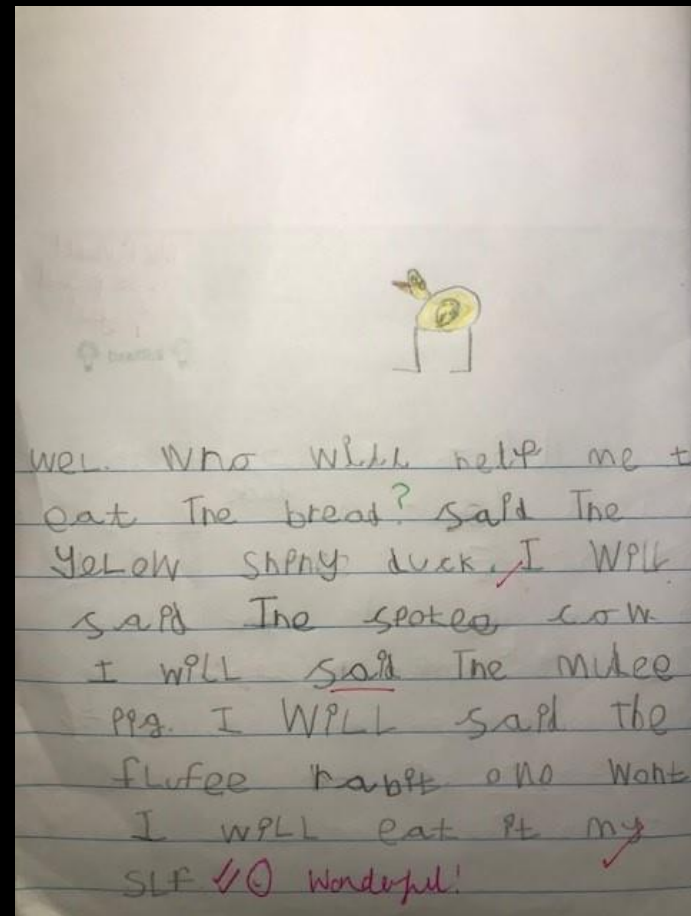 wel. Who will help me t
eat The bread? said The
yelow shiny duck. I will
said The spotee cow
I will said The mudee
pig. I will said the
flufee rabit o no wont
I will eat it my
slf Wonderful!